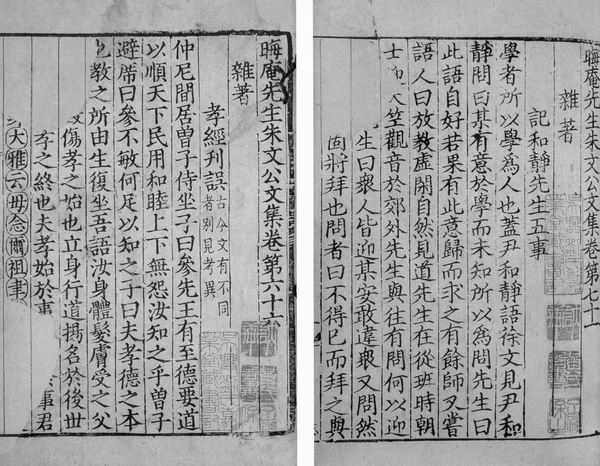 晦庵先生朱文公文集卷第七十一
雜著
記和靜先生五事
學者所以學為人也蓋尹和靜語徐文見尹和
靜問曰某有意於學而未知所以為問先生曰
此語自好若果有此意歸而求之有餘師又嘗
語人曰放教虛閑自然見道先生在從班時朝
士竺觀音於郊外先生與往有問何以迎
生曰衆人皆迎某安敢違衆又問然
固將拜也問者曰不得已而拜之與
晦庵先生朱文公文集卷第六十六
雜著
孝經刊誤 古今文有不同
者別見考異
仲尼閒居曾子侍坐子曰參先王有至德要道
以順天下民用和睦上下無怨汝知之乎曾子
避席曰參不敏何足以知之子曰夫孝德之本
教之所由生復坐吾語汝身體髮膚受之父
傷孝之始也立身行道揚名於後世
孝之終也夫孝始於事 事君
大雅云毋念爾祖聿